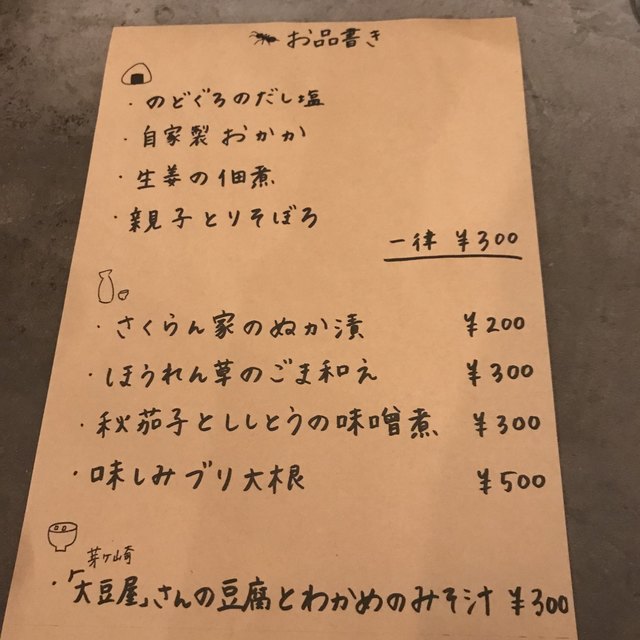 お品書き
・のどぐろのだし塩
・自家製おかか
・生姜の佃煮
・親子とりそぼろ
一律 ¥300
・さくらん家のぬか漬 ¥200
・ほうれん草のごま和え ¥300
・秋茄子とししとうの味噌煮 ¥300
・味しみブリ大根 ¥500
茅ヶ崎
・「大豆屋」さんの豆腐とわかめのみそ汁 ¥300